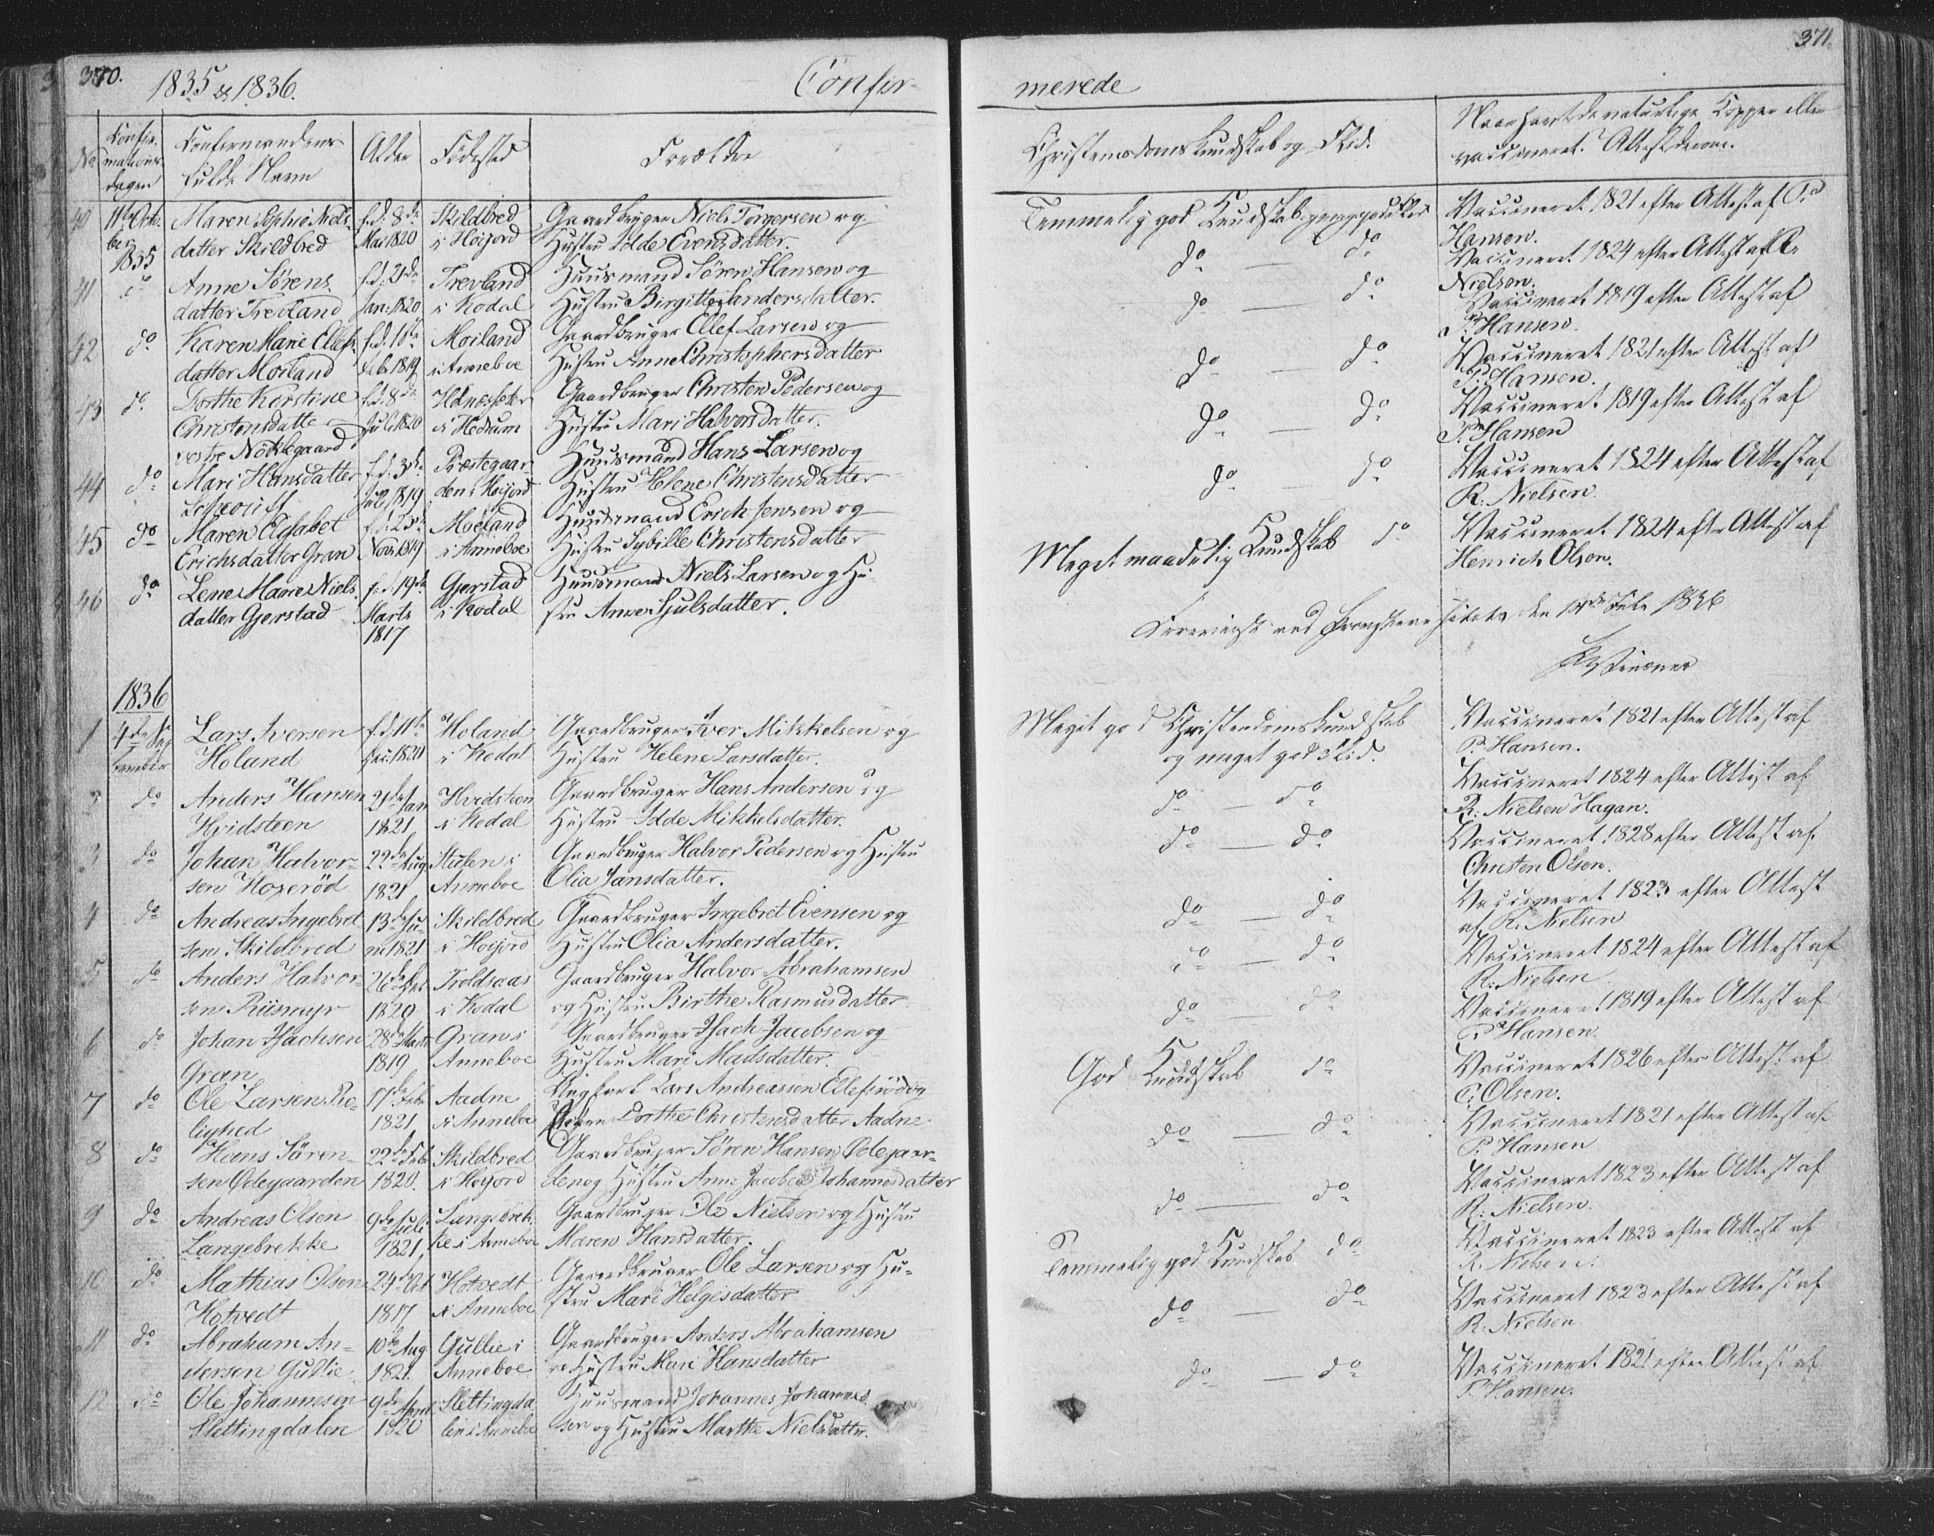 370.
1835 & 1836.
Confir-
No.
Confir-
mations
dagen
Confirmandens
fulde Navn
Alder
Fødested
Forældre
40
11te Octo-
ber
1835
Maren Sophie Niels-
datter Skildbred
f. d. 8de
Mai 1820
Skildbred
i Høijord
Gaardbruger Niels Torgersen og
Hustru Idde Evensdatter.
41
do
Anne Sørens
datter Trevland
f. d. 21de
Jan. 1820
Trevland
i Kodal
Huusmand Søren Hansen og
Hustru Birgitte Andersdatter.
42
do
Karen Marie Ellefs-
datter Moiland
Moiland
i Anneboe
Gaardbruger Ellef Larsen og
Hustru Anne Christophersdatter
43
do
Dorthe Kirstine
Christensdatte
vestre Nøklegaard
f. d. 8de
Juli 1820
i Hedrum
Gaardbruger Christen Pedersen og
Hustru Mari Halvorsdatter.
44
do
Mari Hansdatter
f. d. 3de
Juli 1819
Præstegaar-
den i Høijord
Huusmand Hans Larsen og
Hustru Helene Christensdatter
45
do
Maren Elisabet
Erichsdatter Gran
Nov. 1819
Moeland
i Anneboe
Huusmand Erich Jensen og
Hustru Sybille Christensdatter
46
do
Lene Marie Niels
datter Gjerstad
f. d. 19de
Marts
1817
Gjerstad
i Kodal
Huusmand Niels Larsen og Hu-
stru Anne Hjulsdatter.
1836
1
4de Sep
tember
Lars Iversen
Holand
f. d. 11te
1820
Holand
i Kodal
Gaardbruger Iver Mikkelsen og
Hustru Helene Larsdatter.
2
do
Anders Hansen
Hvidsteen
21de Jan
1821
Hvidsteen
i Kodal
Gaardbruger Hans Andersen og
Hustru Idde Mikkelsdatter.
3
do
Johan Halvor-
sen Hoxerød
22de Aug
1821
Stulen i
Anneboe
Gaardbruger Halvor Pedersen og Hustru
Olia Jansdatter.
4
do
Andreas Ingebret
sen Skildbred
13de Ju-
ni 1821
Skildbred
i Høijord
Gaardbruger Ingebret Evensen og
Hustru Olia Andersdatter.
5
do
Anders Halvor-
sen Riismyr
1820
Troldsaas
i Kodal
Gaardbruger Halvor Abrahamsen
og Hustru Birthe Rasmusdatter
6
do
Johan Isachsen
Gran
28de Marts
1819
Gran i
Anneboe
Gaardbruger Isach Jacobsen og
Hustru Mari Madsdatter.
7
do
Ole Larsen Ro-
lighed
17de Febr
1821
Aadne
i Anneboe
Ungkarl Lars Andreassen Ellefsrød og
Pigen Dorthe Christensdatter Aadne
8
do
Hans Sören-
sen Ødegaarden
22de Feb
1820.
Skildbred
i Høijord
Gaardbruger Søren Hansen Ødegaar-
den og Hustru Anne Jacobea Johannesdatter
9
do
Andreas Olsen
Langebrekke
9de Juli
1821,
Langebrek-
ke i Anneboe
Gaardbruger Ole Nielsen og Hustru
Maren Hansdatter.
10
do
Mathias Olsen
Hotvedt
24de Oct
1817
Hotvedt
i Anneboe
Gaardbruger Ole Larsen og Hu-
stru Mari Helgesdatter
11
do
Abraham An-
dersen Gullie
10de Aug
1821.
Gullie i
Anneboe
Gaardbruger Anders Abrahamsen
og Hustru Mari Hansdatter
12
do
Ole Johannesen
Slettingdalen
9de April
1820
Slettingda
len i Anneboe
Huusmand Johannes Johannes
sen og Hustru Marthe Nielsdatter.
371.
merede
Christendomskundskab og Flid.
Naar havt de naturlige Kopper eller
vaccineret. Attest derom.
Temmelig god Kundskab og god Flid
Vaccineret 1821 efter Attest af P.
Hansen.
do — do
Vaccineret 1824 efter Attest af R.
Nielsen.
do — do
Vaccineret 1819 efter Attest af
P. Hansen.
do — do
Vaccineret 1821 efter Attest af
P. Hansen.
do — do
Vaccineret 1819 efter Attest af
P. Hansen
do — do
Vaccineret 1824 efter Attest af
R. Nielsen
Meget maadelig Kundskab do
Vaccineret 1824 efter Attest af
Henrich Olsen.
den 14de Febr 1836
Meget god Christendomskundskab
og meget god Flid.
Vaccineret 1821 efter Attest af
P. Hansen.
do — do
Vaccineret 1824 efter Attest af
R. Nielsen Hagan.
do — do
Vaccineret 1828 efter Attest af
Christen Olsen.
do — do
Vaccineret 1823 efter Attest
af R. Nielsen
do — do
Vaccineret 1824 efter Attest af
R. Nielsen
do — do
Vaccineret 1819 efter Attest af
P. Hansen.
God Kundskab do
Vaccineret 1826 efter Attest af
C. Olsen.
do — do
Vaccineret 1821 efter Attest af
P. Hansen
do — do
Vaccineret 1823 efter Attest af
R. Nielsen.
Temmelig god Kundskab do
Vaccineret 1823 efter Attest af
R. Nielsen.
do — do
Vaccineret 1823 efter Attest af
R. Nielsen
do — do
Vaccineret 1821 efter Attest af
P. Hansen.